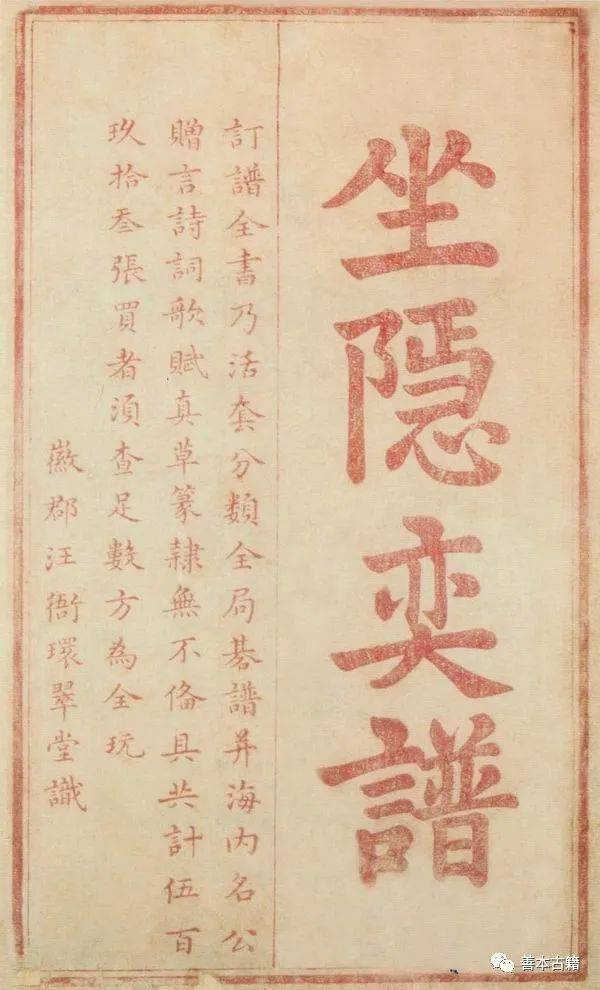 坐隱奕譜
訂譜全書乃活套分類全局碁譜并海內名公
贈言詩詞歌賦真草篆隸無不俻具共計伍百
玖拾叁張買者須查足數方為全玩
徽郡汪衙環翠堂識
善本古籍